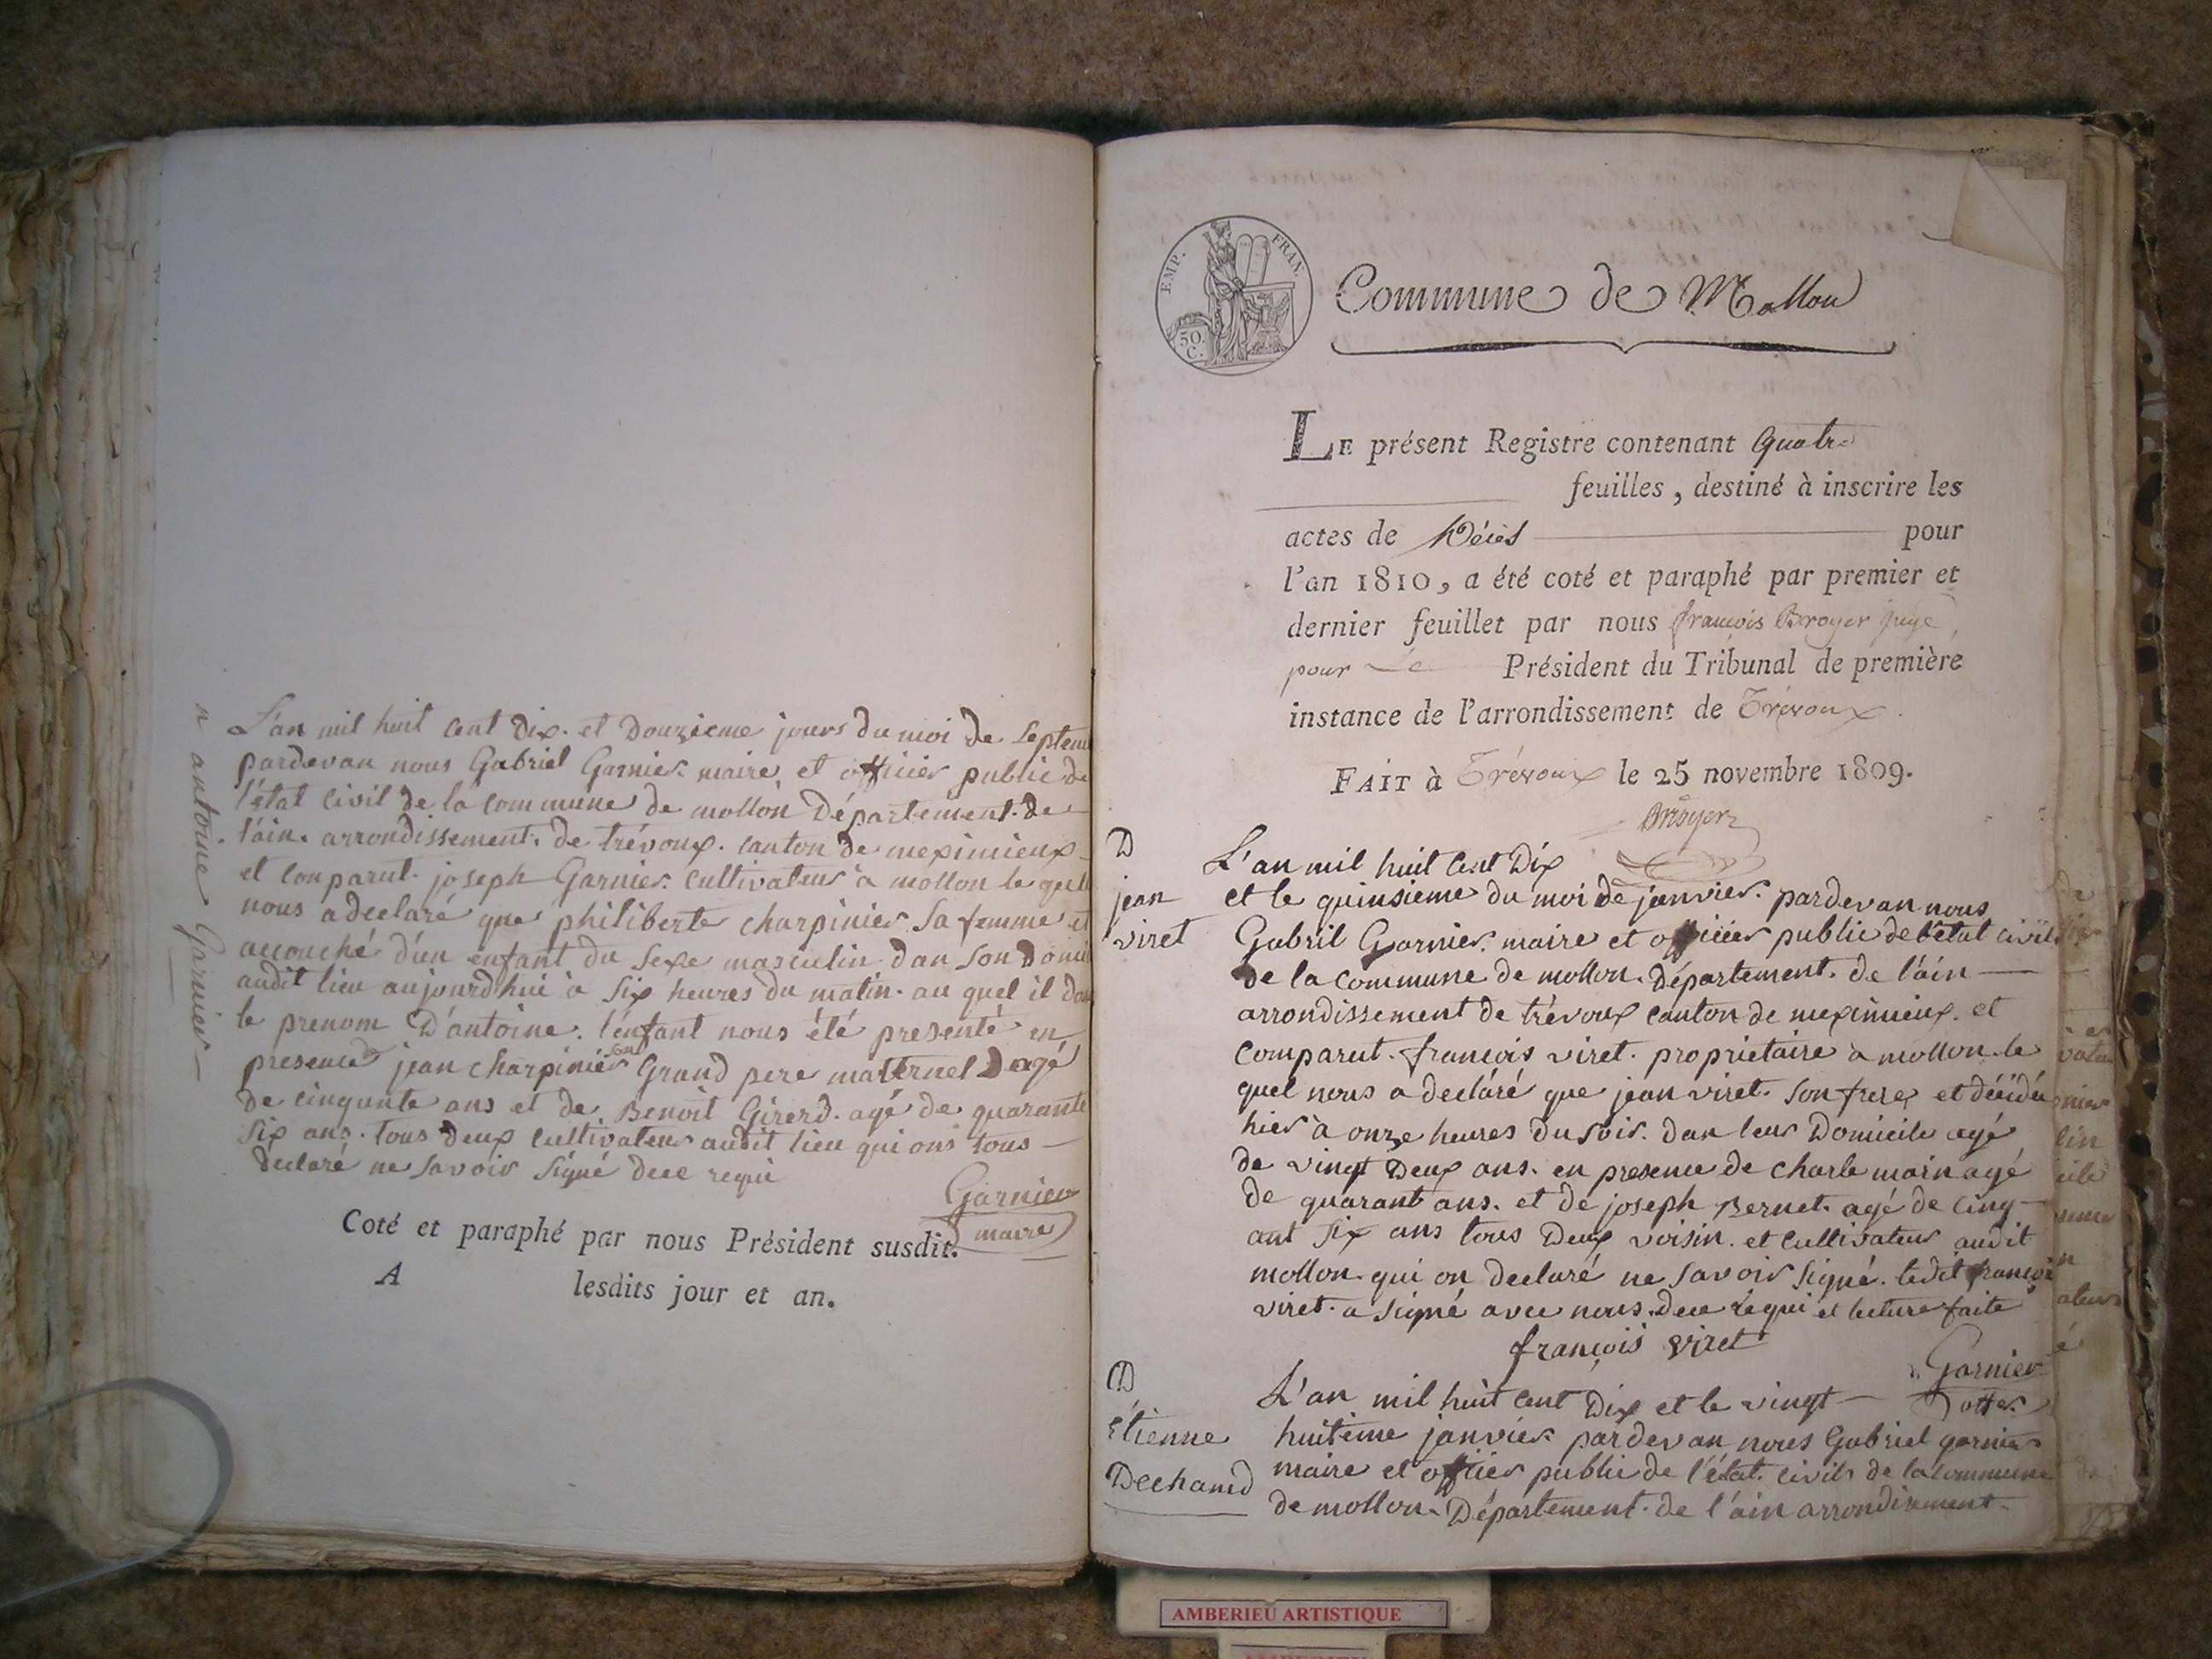 n antoine Garnier
L'an mil huit cent Dix. et Douzieme jours du moi de Septem
pardevan nous Gabriel Garnier maire et officier public de
l'état civil de la commune de mollon Département de
l'ain. arrondissement. de trévoux. canton de meximieux
et comparut. joseph Garnier. cultivateur a mollon le quel
nous a declaré que philiberte charpinier Sa femme et
accouché d'un enfant du Sexe masculin dan son Domi
audit lieu aujourd'hui a Six heures du matin. au quel il don
le prenom D'antoine. l'enfant nous été presenté en
presence jean charpinier Grand pere maternel D agé
De cinquante ans et de Benoit Girerd. agé de quarante
Six ans. tous Deux cultivateur audit lieu qui ons tous
declaré ne savoir Signé dece requi
Garnier
maire
Coté et paraphé par nous Président susdit.
A lesdits jour et an.
EMP. FRAN.
50. C.
Commune de Mollon
LE présent Registre contenant quatre
feuilles, destiné à inscrire les
actes de Décès pour
l'an 1810, a été coté et paraphé par premier et
dernier feuillet par nous françois Broyer juge
pour Le Président du Tribunal de première
instance de l'arrondissement de Trévoux.
FAIT à Trévoux le 25 novembre 1809.
Broyer
D
jean
viret
L'an mil huit Cent Dix
et le quinsieme du moi de janvier. pardevan nous
Gabril Garnier. maire et officier public de l'état civil
de la commune de mollon. Département. de l'ain
arrondissement de trévoux canton de meximieux. et
comparut. françois viret. proprietaire a mollon. le
quel nous a declaré que jean viret. son frere et décédé
hier à onze heures du soir. dan leur Domicile agé
de vingt Deux ans. en presence de charle main agé
de quarant ans. et de joseph Bernet. agé de cinq
ant Six ans tous Deux voisin. et cultivateur audit
mollon. qui on declaré ne savoir signé. ledit françoi
viret. a signé avec nous. dece requi et lecture faite
françois viret
Garnier
D
Etienne
Dechamd
L'an mil huit cent Dix et le vingt
huitème janvier pardevan nous Gabriel garnier
maire et officier public de l'état. civils de la commune
de mollon. Département. de l'ain arrondisement
AMBERIEU ARTISTIQUE